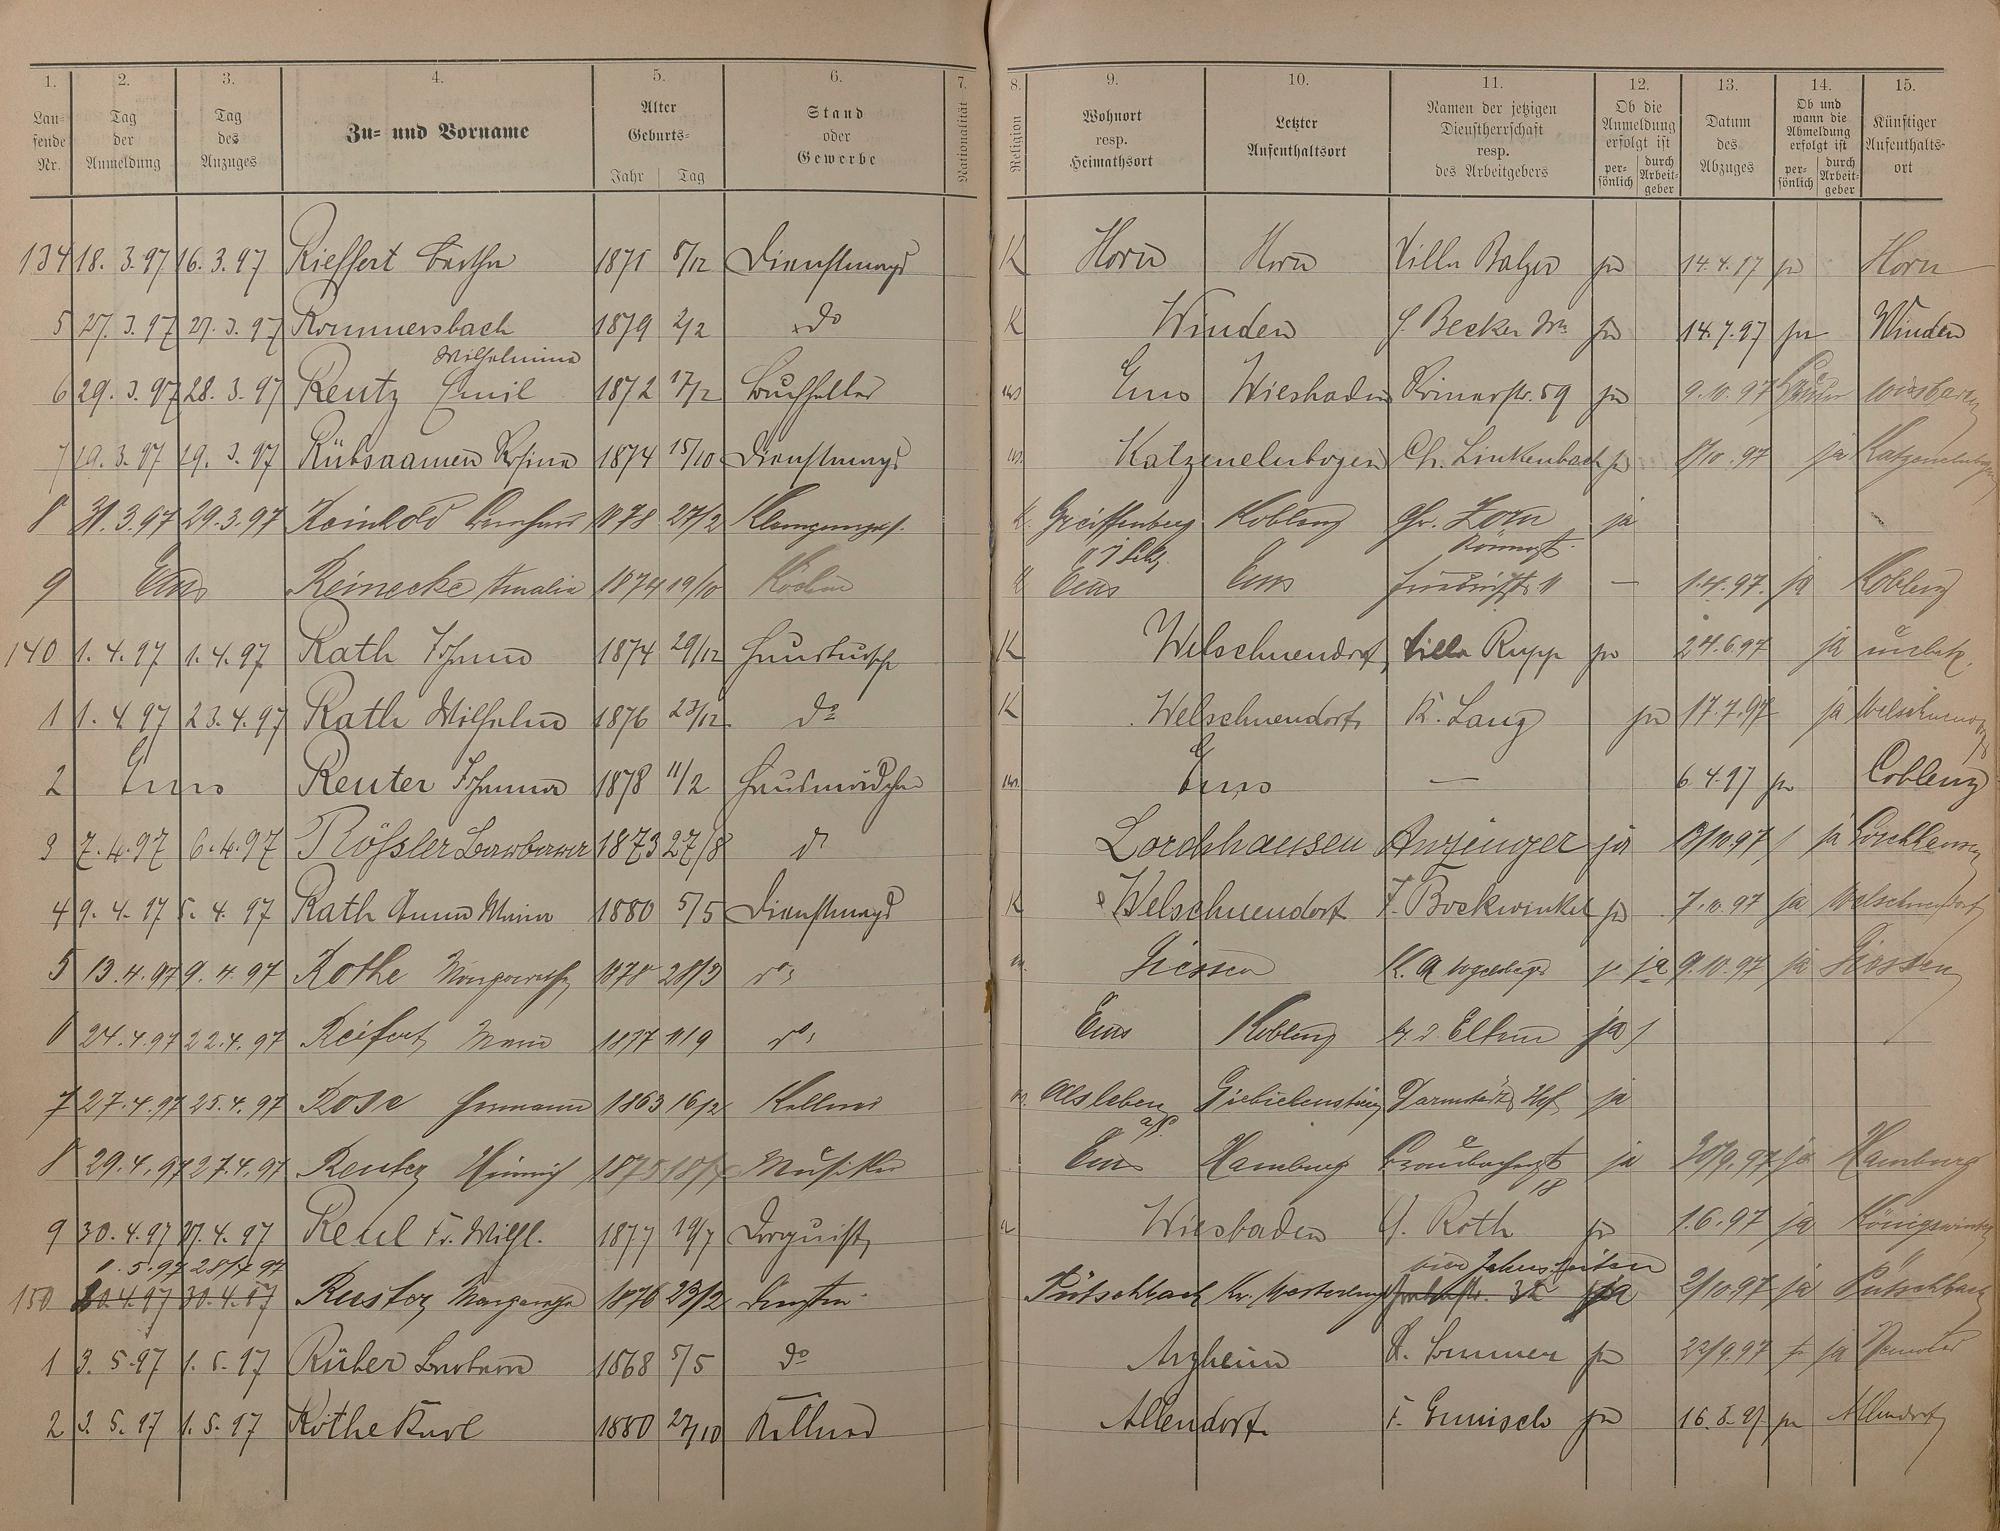 1. 2. 3. 4. 5. 6. 7. 8. 9. 10. 11. 12. 13. 14. 15.
Laufende Nr. Tag der Anmeldung Tag des Anzuges Zu- und Vorname Alter Geburts- Jahr Tag Stand oder Gewerbe Nationalität Religion Wohnort resp. Heimathsort Letzter Aufenthaltsort Namen der jetzigen Dienstherrschaft resp. des Arbeitgebers Ob die Anmeldung erfolgt ist persönlich durch Arbeitgeber Datum des Abzuges Ob und wann die Abmeldung erfolgt ist persönlich durch Arbeitgeber Künftiger Aufenthaltsort
134 18. 3. 97 16. 3. 97 Rieffert Bertha 1871 5/12 Dienstmagd K Horn Horn Villa Balzer ja 14. 4. 97 ja Horn
5 27. 3. 97 27. 3. 97 Rommersbach Wilhelmina 1879 2/2 do K Winden Becker ja 14. 7. 97 ja Winden
6 29. 3. 97 28. 3. 97 Reutz Emil 1872 17/2 Ems Wiesbaden Römerstr. 59 ja 9. 10. 97 Wiesbaden
7 19. 3. 97 19. 3. 97 Rübsaamen Rosina 1874 15/10 Dienstmagd Katzenelnbogen Ch. Linkenbach ja 1/10. 97 ja Katzenelnbogen
8 31. 3. 97 29. 3. 97 Reinhold 1878 27/2 K. Greiffenberg Koblenz Zorn Römerst. ja
9 Ems Reinecke Amalia 1874 19/10 Köchin Ems Ems — 1. 4. 97. ja Koblenz
140 1. 4. 97 1. 4. 97 Rath Johann 1874 29/12 Hausbursche K Welschneudorf Villa Rupp ja 24. 6. 97 ja unbek.
1 1. 4. 97 23. 4. 97 Rath Wilhelm 1876 23/12 do K Welschneudorf K. Lang ja 17. 7. 97 ja Welschneudorf
2 Ems Reuter Johanna 1878 11/2 Hausmädchen Ems — 6 4. 97 ja Coblenz
3 7. 4. 97 6. 4. 97 Rößler Barbara 1873 27/8 d Lorchhausen Anzinger ja 13/10. 97 ja Lorchhausen
4 9. 4. 97 5. 4. 97 Rath Anna Maria 1880 5/5 Dienstmagd K Welschneudorf F. Bockwinkel ja 7. 10. 97 ja Welschneudorf
5 13. 4. 97 9. 4. 97 Rothe Margarethe 1878 28/3 do Giessen K. A. Vogelsberger ja 9. 10. 97 ja Giessen
6 24. 4. 97 22. 4. 97 Reifert Maria 1877 11/9 do Ems Koblenz ja
7 27. 4. 97 25. 4. 97 Rose Hermann 1863 16/2 Kellner Alsleben a/S. Giebichenstein Darmstädter Hof ja
8 29. 4. 97 27. 4. 97 Heinrich 1875 Musiker Ems Hamburg 18 ja 30/9. 97 ja Hamburg
9 30. 4. 97 27. 4. 97 Reul Fr. Wilh. 1877 19/7 Wiesbaden G. Roth ja 1. 6. 97 ja Königswinter
1. 5. 97 28/4 97 vier Jahreszeiten
150 30. 4. 97 30. 4. 97 Margaretha 1876 23/2 Pütschbach Kr. Westerburg ja 2/10. 97 ja Pütschbach
1 3. 5. 97 1. 5. 97 Rüber Barbara 1868 5/5 do Arzheim Sommer ja 22/9. 97 ja
2 3. 5. 97 1. 5. 97 Rothe Karl 1880 27/10 Kellner Allendorf F. Gemisch ja 16. 8. 97 ja Allendorf